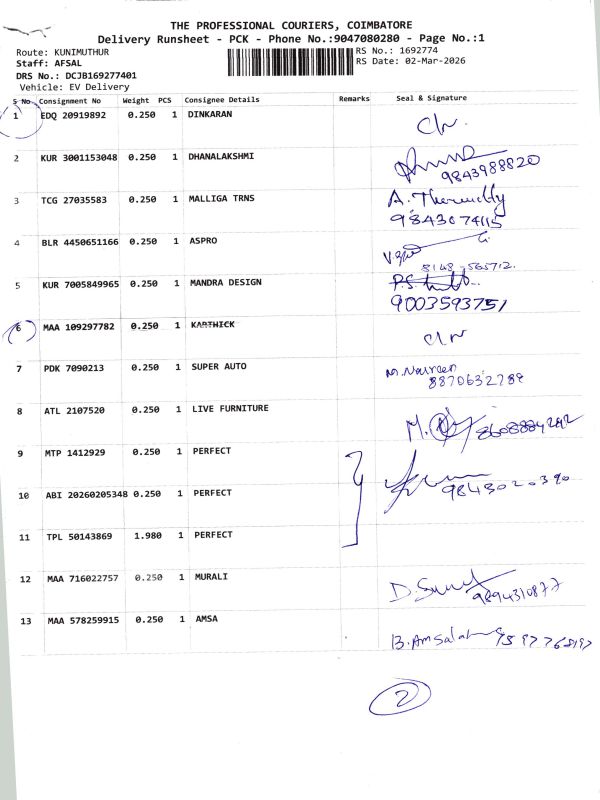 THE PROFESSIONAL COURIERS, COIMBATORE
Delivery Runsheet - PCK - Phone No.:9047080280 - Page No.:1
Route: KUNIMUTHUR RS No.: 1692774
Staff: AFSAL RS Date: 02-Mar-2026
DRS No.: DCJB169277401
Vehicle: EV Delivery
S No. Consignment No Weight PCS Consignee Details Remarks Seal & Signature
1 EDQ 20919892 0.250 1 DINKARAN
2 KUR 3001153048 0.250 1 DHANALAKSHMI
9843988820
3 TCG 27035583 0.250 1 MALLIGA TRNS A.
9843074115
4 BLR 4450651166 0.250 1 ASPRO
8148-565712.
5 KUR 7005849965 0.250 1 MANDRA DESIGN
9003593751
6 MAA 109297782 0.250 1 KARTHICK
7 PDK 7090213 0.250 1 SUPER AUTO M. Naveen
8870632789
8 ATL 2107520 0.250 1 LIVE FURNITURE
9 MTP 1412929 0.250 1 PERFECT
10 ABI 20260205348 0.250 1 PERFECT 9843020390
11 TPL 50143869 1.980 1 PERFECT
12 MAA 716022757 0.250 1 MURALI
9894310877
13 MAA 578259915 0.250 1 AMSA
2